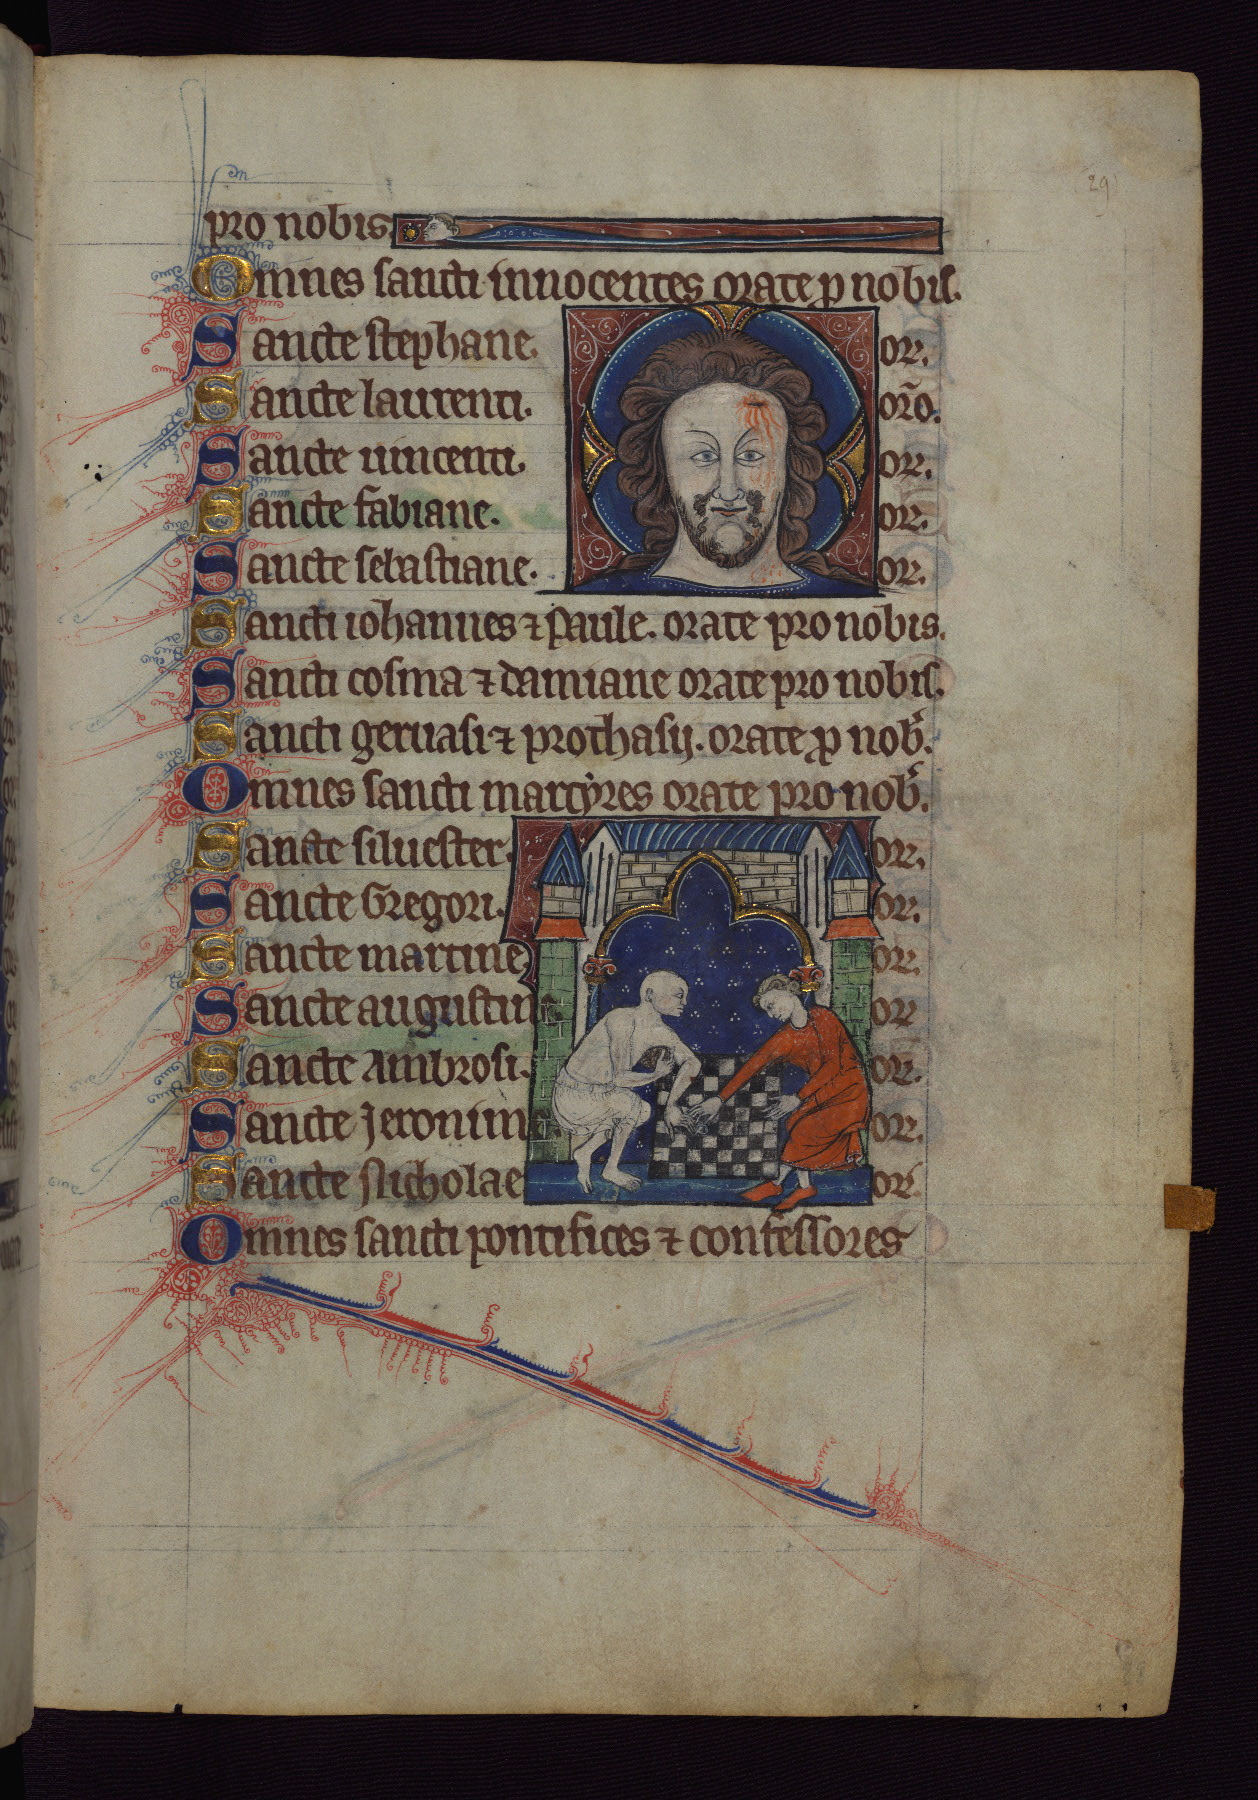 29
pro nobis.
Omnes sancti innocentes orate p nobis.
Sancte stephane. or.
Sancte laurenti. oro.
Sancte uincenti. or.
Sancte fabiane. or.
Sancte sebastiane. or.
Sancti iohannes ⁊ Paule. orate pro nobis.
Sancti cosma ⁊ damiane orate pro nobis.
Sancti geruasi ⁊ prothasij. orate p nob.
Omnes sancti martyres orate pro nob.
Sancte siluester. or.
Sancte Gregori. or.
Sancte martine or.
Sancte augustin or
Sancte Ambrosi. or.
Sancte Jeronim or.
Sancte Nicholae or.
Omnes sancti pontifices ⁊ confessores